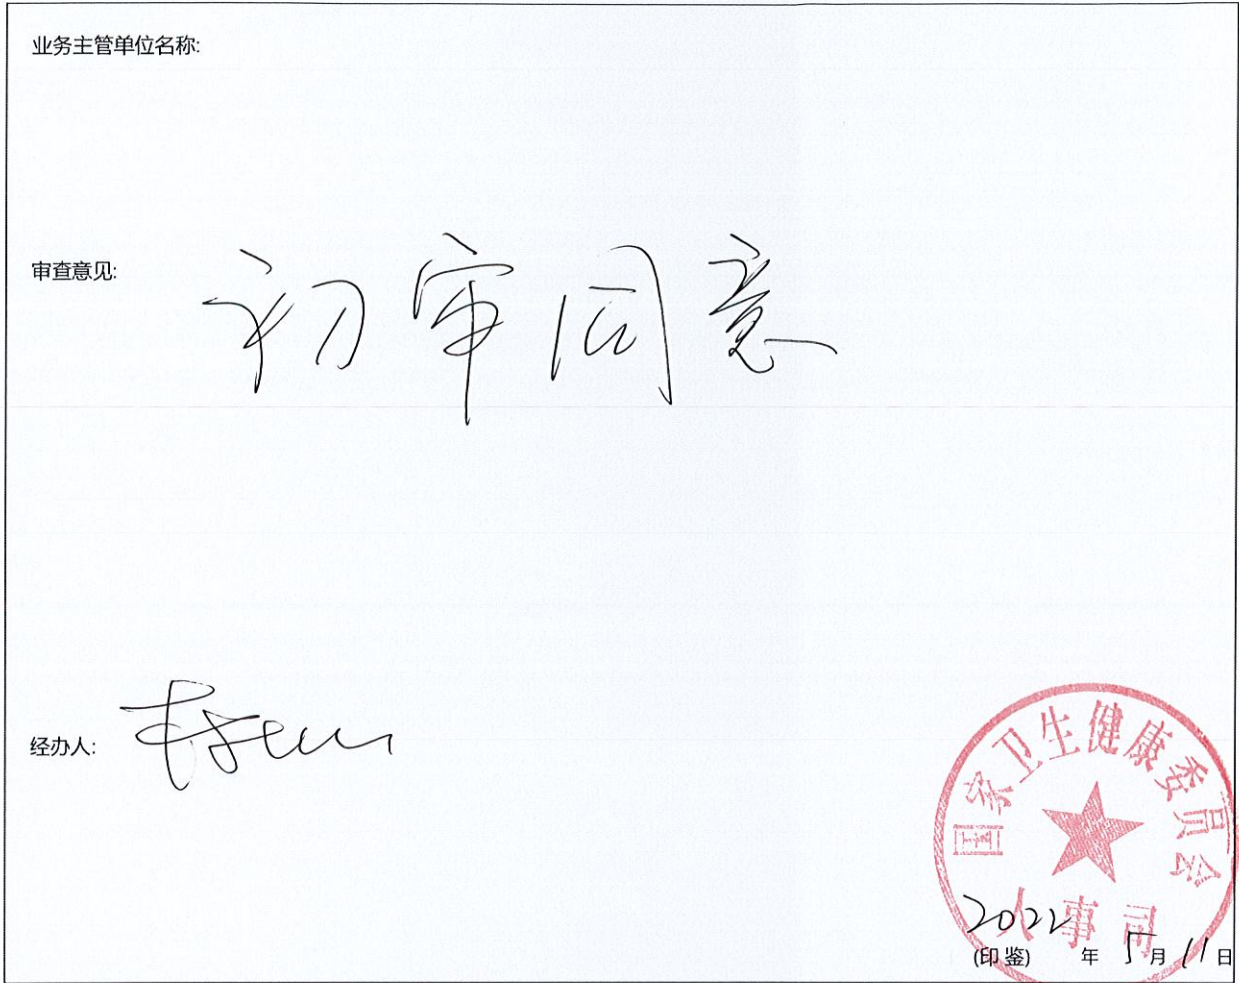 业务主管单位名称:
审查意见: 初审同意
经办人:
国家卫生健康委员会
人事司
2022
(印鉴) 年 5 月 11 日